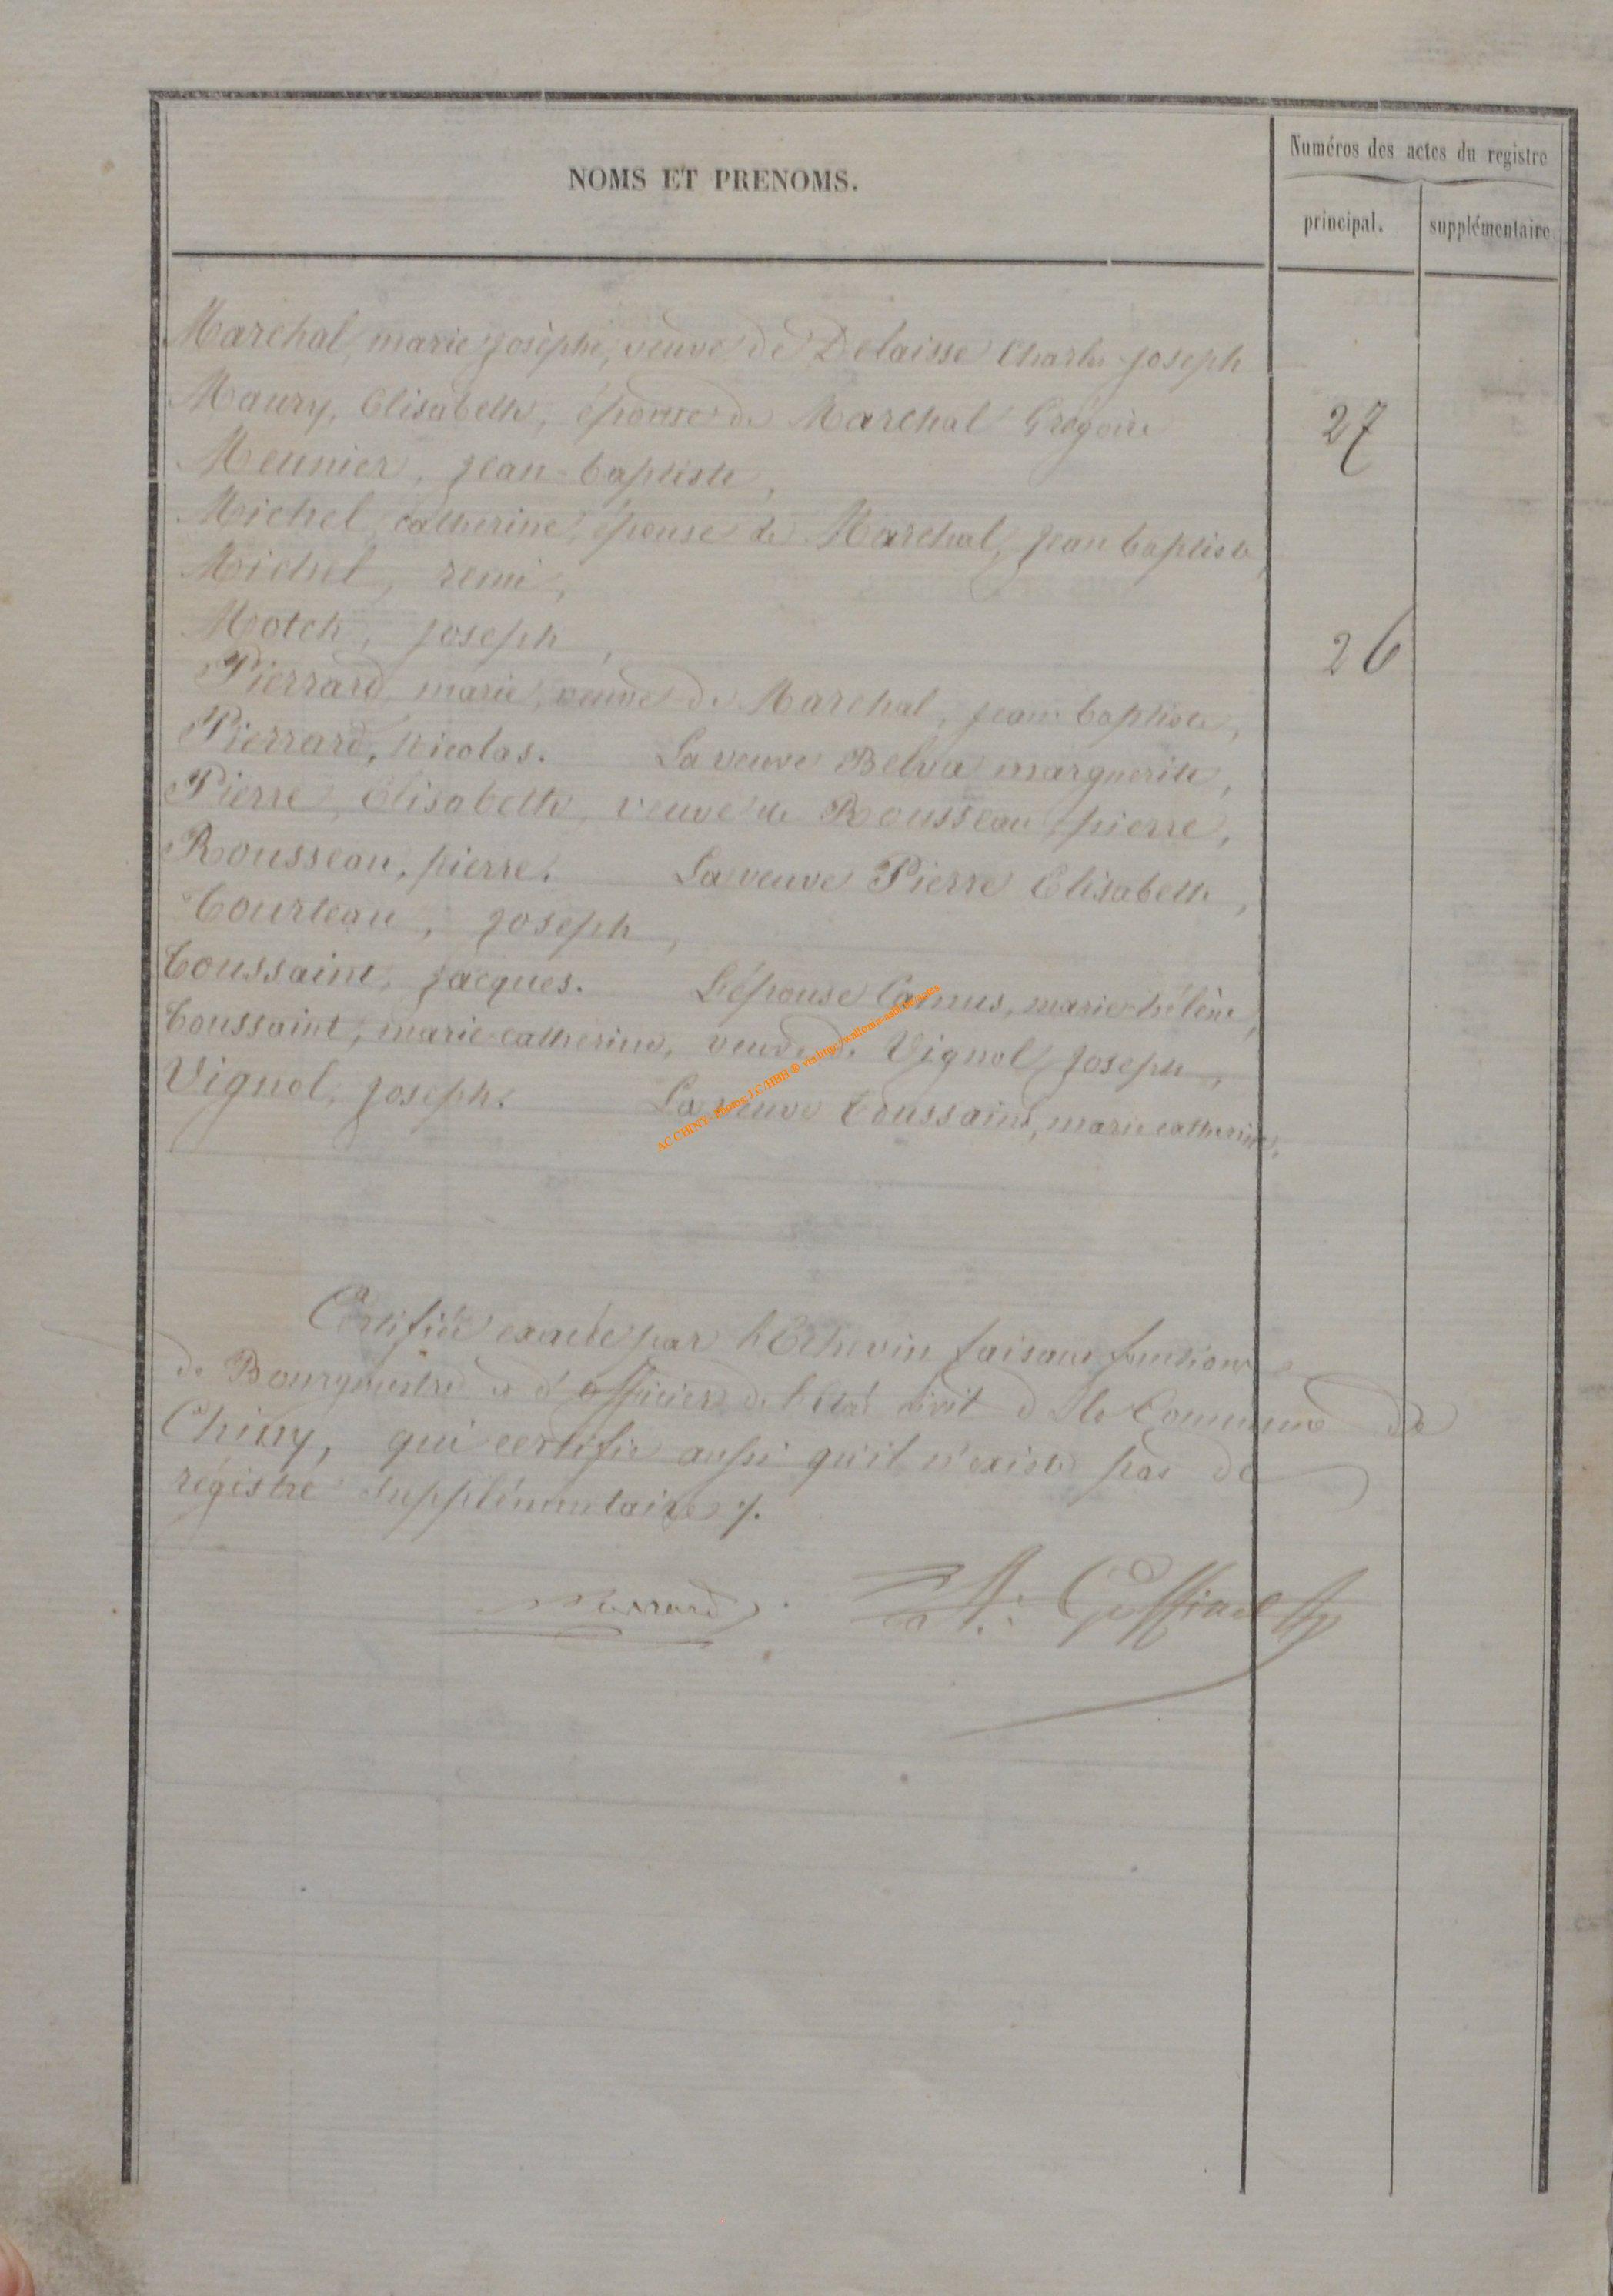 NOMS ET PRENOMS.
Numéros des actes du registre
principal.
supplémentaire.
Marchal, marie josèphe, veuve de Delaisse Charles-joseph
Maury, Elisabeth, épouse de Marchal Grégoire 27
Meunier, jean-baptiste,
Michel, catherine, épouse de Marchal, jean baptiste,
Michel, remi,
Motch, joseph, 26
Pierrard, marie, veuve de Marchal, jean baptiste,
Pierrard, Nicolas. La veuve Belva marguerite,
Pierre, Elisabeth, veuve de Rousseau, pierre,
Rousseau, pierre. La veuve Pierre Elisabeth,
Tourteau, joseph,
Toussaint, jacques. L'épouse Camus, marie-hélène,
Toussaint, marie-catherine, veuve de Vignol, joseph,
Vignol, joseph. La veuve Toussaint, marie catherine,
AC CHINY: Photog J.C/HBH ® via http://wallonia-asbl
Certifiée exacte par l'Echevin faisant fonctions
de Bourgmestre et d'officier de l'état civil de la Commune de
Chiny, qui certifie aussi qu'il n'existe pas de
régistre supplémentaire ./.